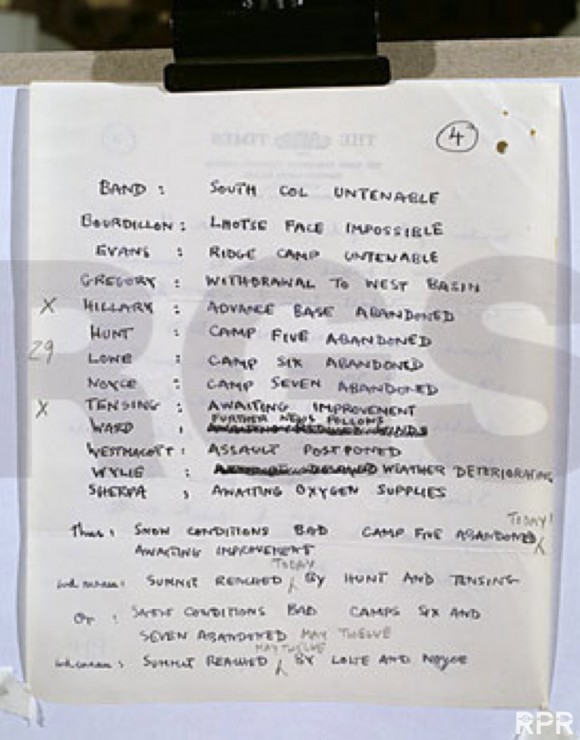 4
BAND : SOUTH COL UNTENABLE
BOURDILLON : LHOTSE FACE IMPOSSIBLE
EVANS : RIDGE CAMP UNTENABLE
GREGORY : WITHDRAWAL TO WEST BASIN
X HILLARY : ADVANCE BASE ABANDONED
HUNT : CAMP FIVE ABANDONED
29 LOWE : CAMP SIX ABANDONED
NOYCE : CAMP SEVEN ABANDONED
X TENSING : AWAITING IMPROVEMENT
FURTHER NEWS FOLLOWS
WARD :
WESTMACOTT : ASSAULT POSTPONED
WYLIE : WEATHER DETERIORATING
SHERPA : AWAITING OXYGEN SUPPLIES
TODAY!
Thus : SNOW CONDITIONS BAD CAMP FIVE ABANDONED
AWAITING IMPROVEMENT
TODAY
wd mean : SUMMIT REACHED BY HUNT AND TENSING
Or : SNOW CONDITIONS BAD CAMPS SIX AND
SEVEN ABANDONED MAY TWELVE
MAY TWELVE
wd mean : SUMMIT REACHED BY LOWE AND NOYCE
THE TIMES
RES
RPR